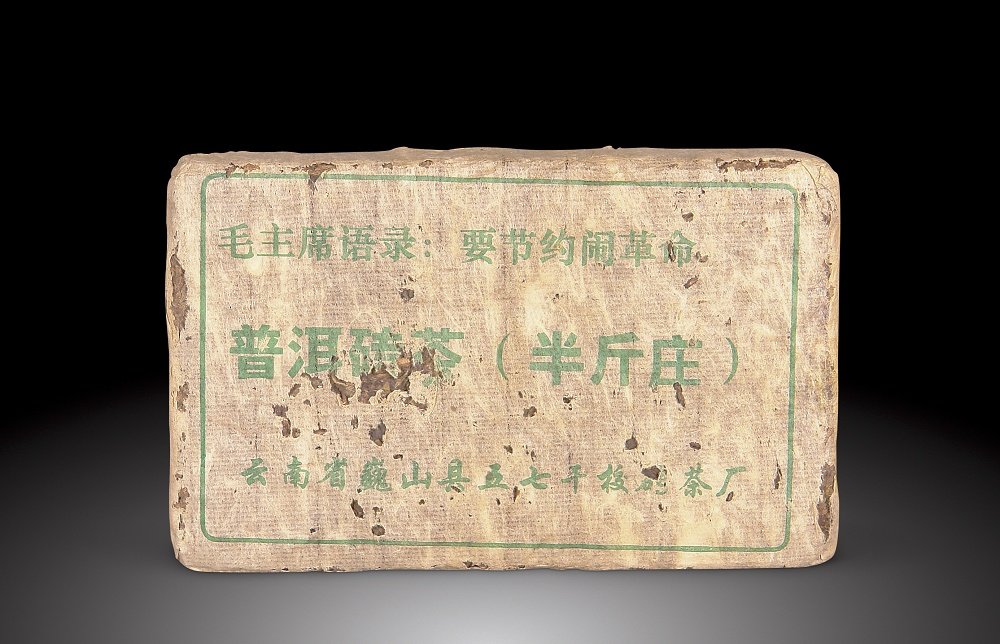 毛主席语录：要节约闹革命
普洱砖茶（半斤庄）
云南省巍山县五七干校砖茶厂